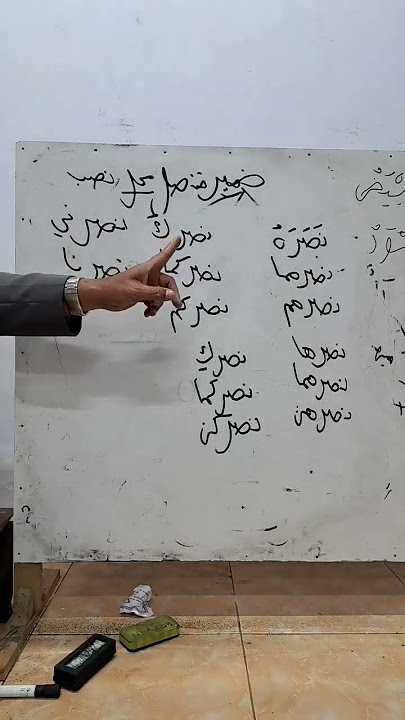 ضمير متصل محل نصب
نَصَرَهُ نصركَ نصرني
نصرهما نصركما نصرنا
نصرهم نصركم
نصرها نصركِ
نصرهما نصركما
نصرهن نصركن